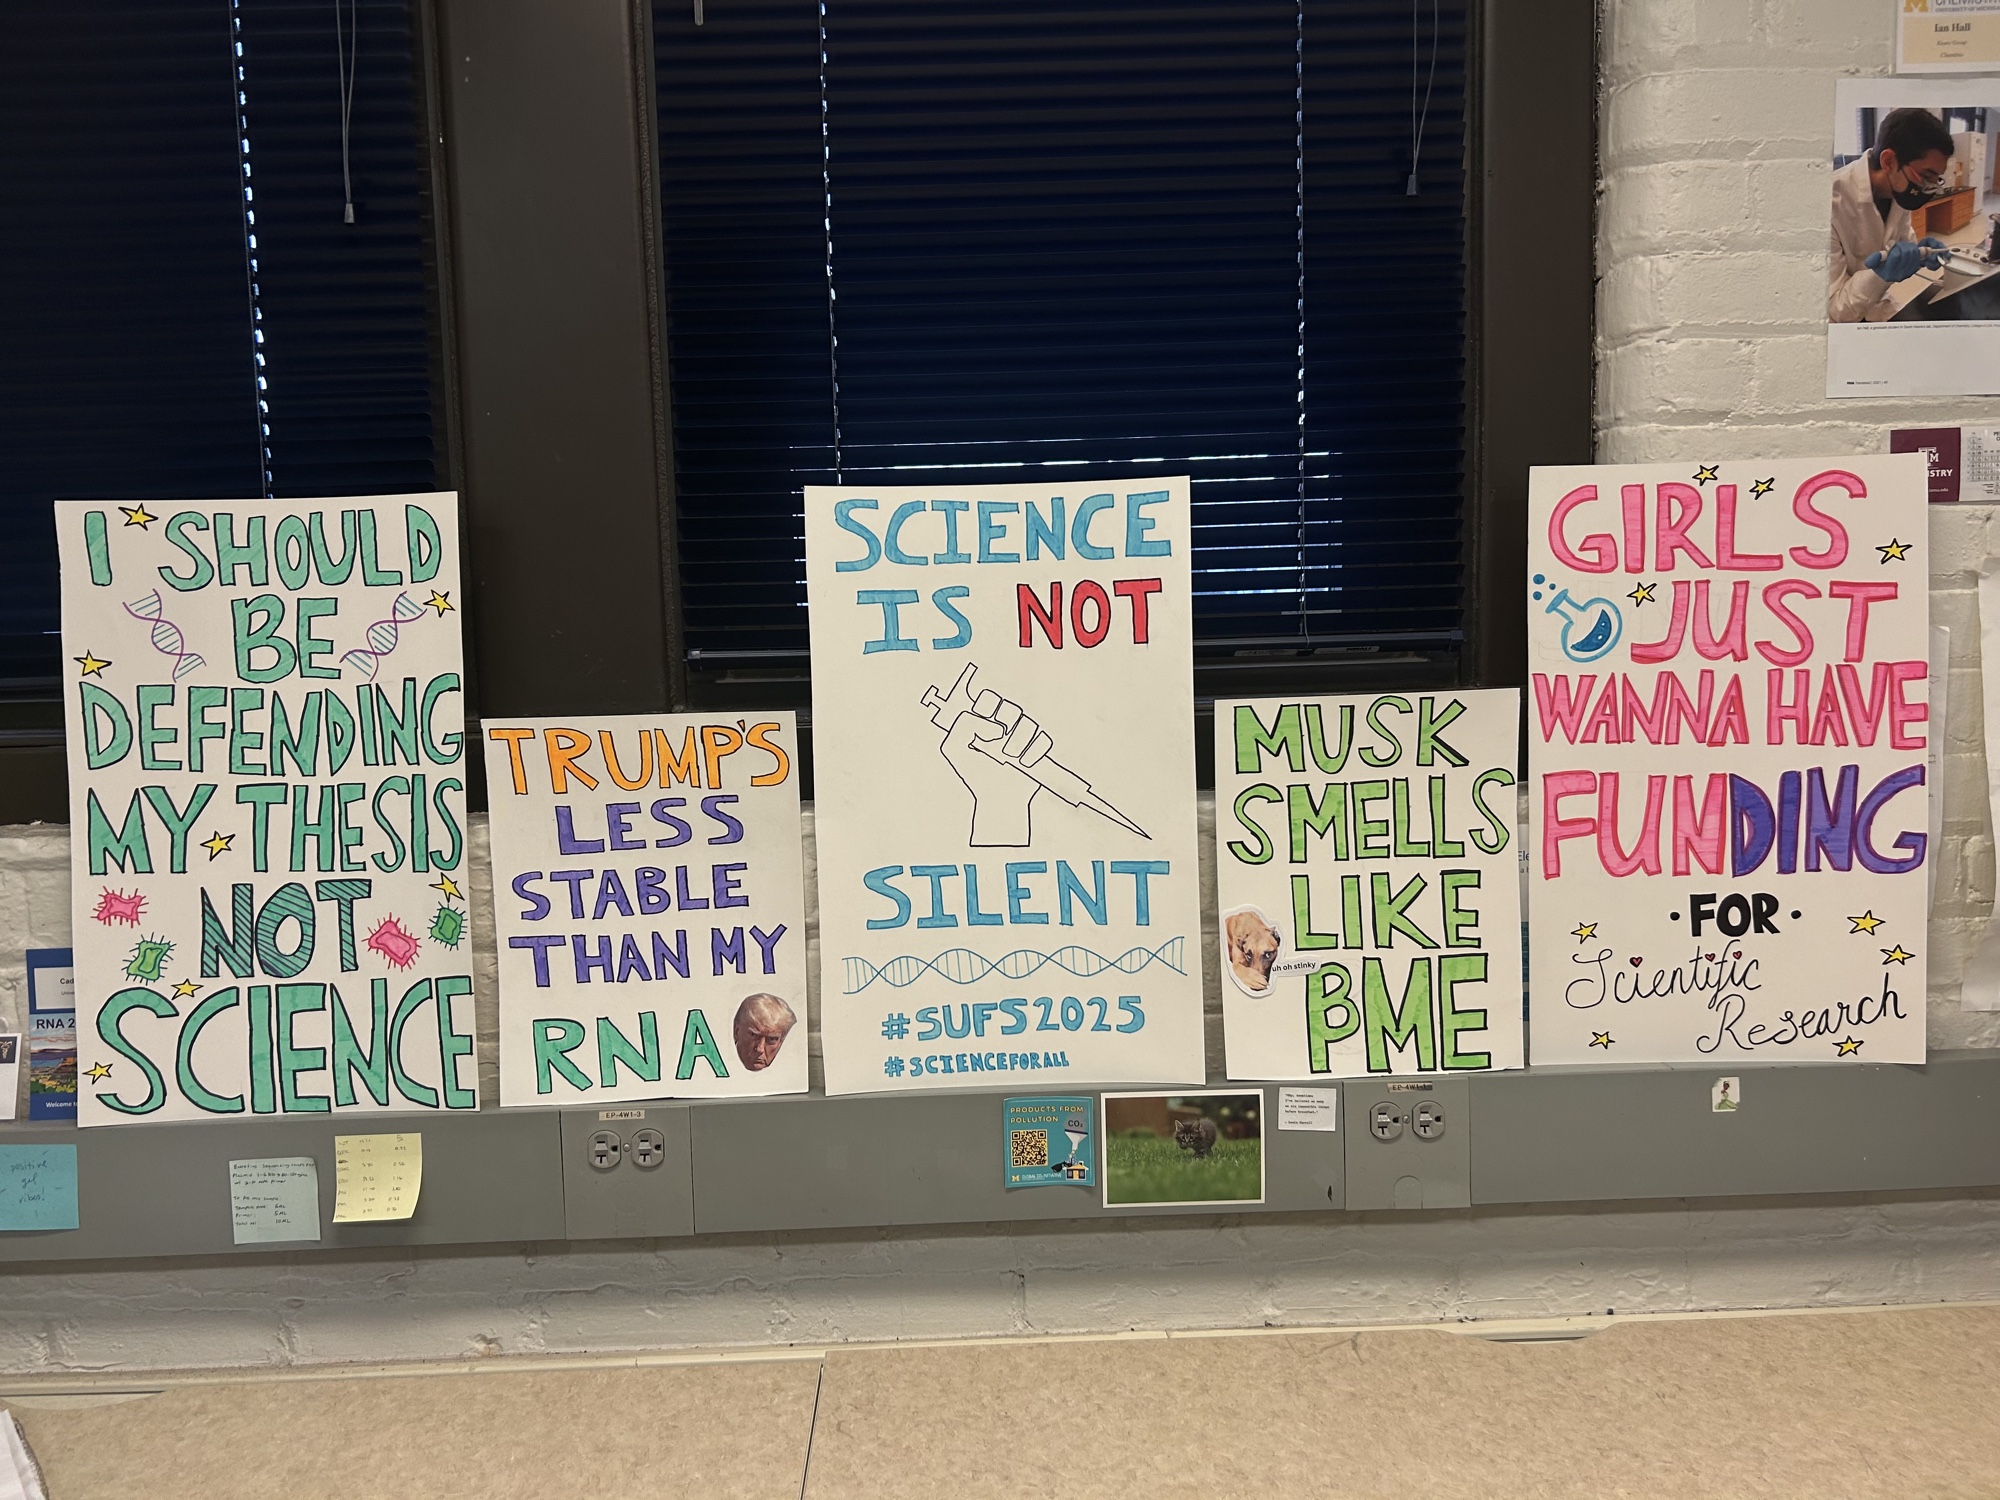 I SHOULD
BE
DEFENDING
MY THESIS
NOT
SCIENCE
TRUMP'S
LESS
STABLE
THAN MY
RNA
SCIENCE
IS NOT
SILENT
#SUFS2025
#SCIENCEFORALL
MUSK
SMELLS
LIKE
BME
uh oh stinky
GIRL'S
JUST
WANNA HAVE
FUNDING
·FOR·
Scientific
Research
Ian Hall
RNA 2
Welcome
positive
gel
vibes!
EP-4W1-3
PRODUCTS FROM
POLLUTION
CO₂